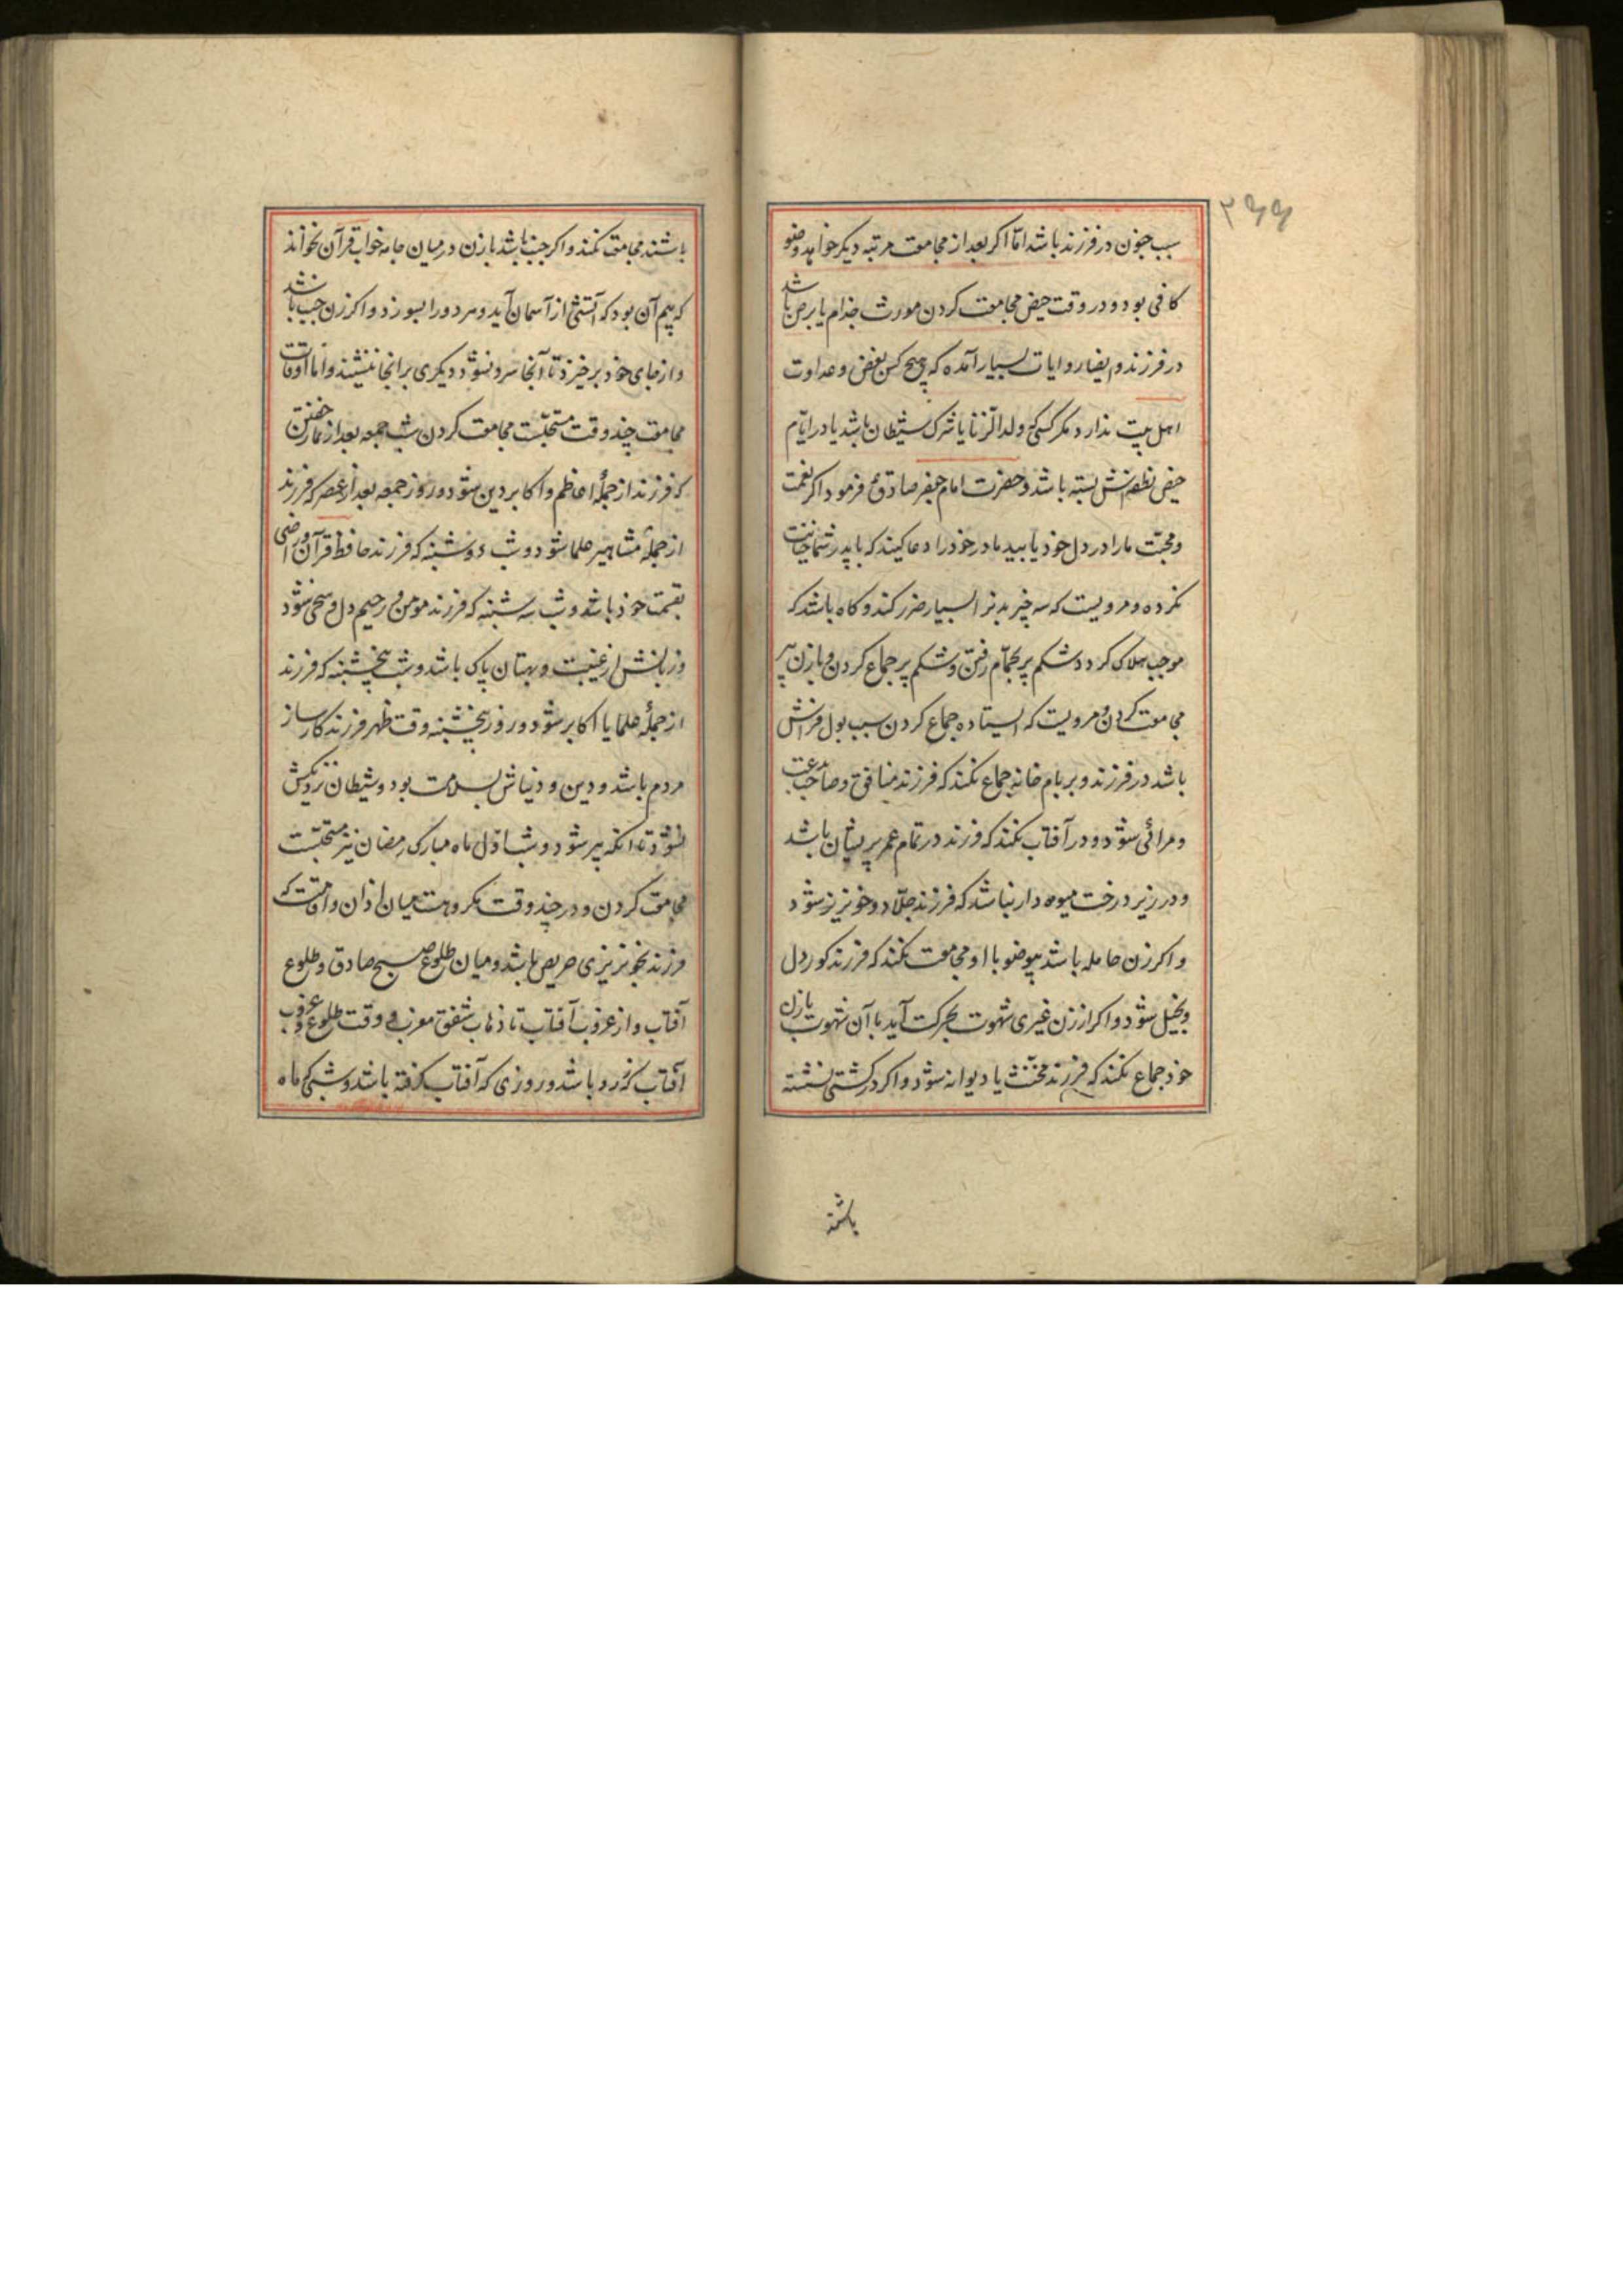 ۲۶۶
سبب جنون در فرزند باشد امّا اکر بعد از مجامعت مرتبه دیکر خواهد وضو
کافی بود و در وقت حیض مجامعت کردن مورث جذام یا برص باشد
در فرزند و در روایات بسیار آمده که هیچ کس بغض و عداوت
اهل بیت ندارد مکر کسی که ولد الزّنا یا شرک شیطان باشد یا در ایّام
حیض نطفه‌اش بسته باشد و حضرت امام جعفر صادق ع فرمود اکر نعمت
و محبّت ما را در دل خود یابید مادر خود را دعا کنید که با پدر شما خیانت
نکرده و مرویست که سه چیز بدنرا بسیار ضرر کند و کاه باشد که
موجب هلاک کردد شکم پر بحمّام رفتن و شکم پر جماع کردن و با زن پیر
مجامعت کردن و مرویست که ایستاده جماع کردن سبب بول فراش
باشد در فرزند و بر بام خانه جماع نکنند که فرزند منافق و صاحب بدعت
و مرائی شود و در آفتاب نکنند که فرزند در تمام عمر پریشان باشد
و در زیر درخت میوه دار نباشد که فرزند جلّاد و خونریز شود
و اکر زن حامله باشد بیوضو با او مجامعت نکنند که فرزند کور دل
و بخیل شود و اکر از زن غیری شهوت بحرکت آید با آن شهوت با زن
خود جماع نکنند که فرزند مخنّث یا دیوانه شود و اکر در کشتی نشسته
باشند
باشند مجامعت نکنند و اکر جنب باشد با زن در میان جامه خواب قرآن نخواند
که بیم آن بود که آتشی از آسمان آید و هر دو را بسوزد و اکر زن جنب باشد
و از جای خود برخیزد تا آنجا سرد نشود دیکری بر آنجا ننشیند و امّا اوقات
مجامعت چند وقت مستحبّست مجامعت کردن شب جمعه بعد از نماز خفتن
که فرزند از جملهٔ اعاظم و اکابر دین شود و روز جمعه بعد از عصر که فرزند
از جملهٔ مشاهیر علما شود و شب دوشنبه که فرزند حافظ قرآن و راضی
بقسمت خود باشد و شب سه شنبه که فرزند مومن و رحیم دل و سخی شود
و زبانش از غیبت و بهتان پاک باشد و شب پنجشنبه که فرزند
از جملهٔ علما یا اکابر شود و روز پنجشنبه وقت ظهر فرزند کارساز
مردم باشد و دین و دنیاش بسلامت بود و شیطان نزدیکش
نشود تا آنکه پیر شود و شب اوّل ماه مبارک رمضان نیز مستحبّست
مجامعت کردن و در چند وقت مکروهست میان اذان و اقامت که
فرزند بخونریزی حریص باشد و میان طلوع صبح صادق و طلوع
آفتاب و از غروب آفتاب تا ذهاب شفق مغرب و وقت طلوع و غروب
آفتاب که زرد باشد و روزی که آفتاب کرفته باشد و شبی که ماه